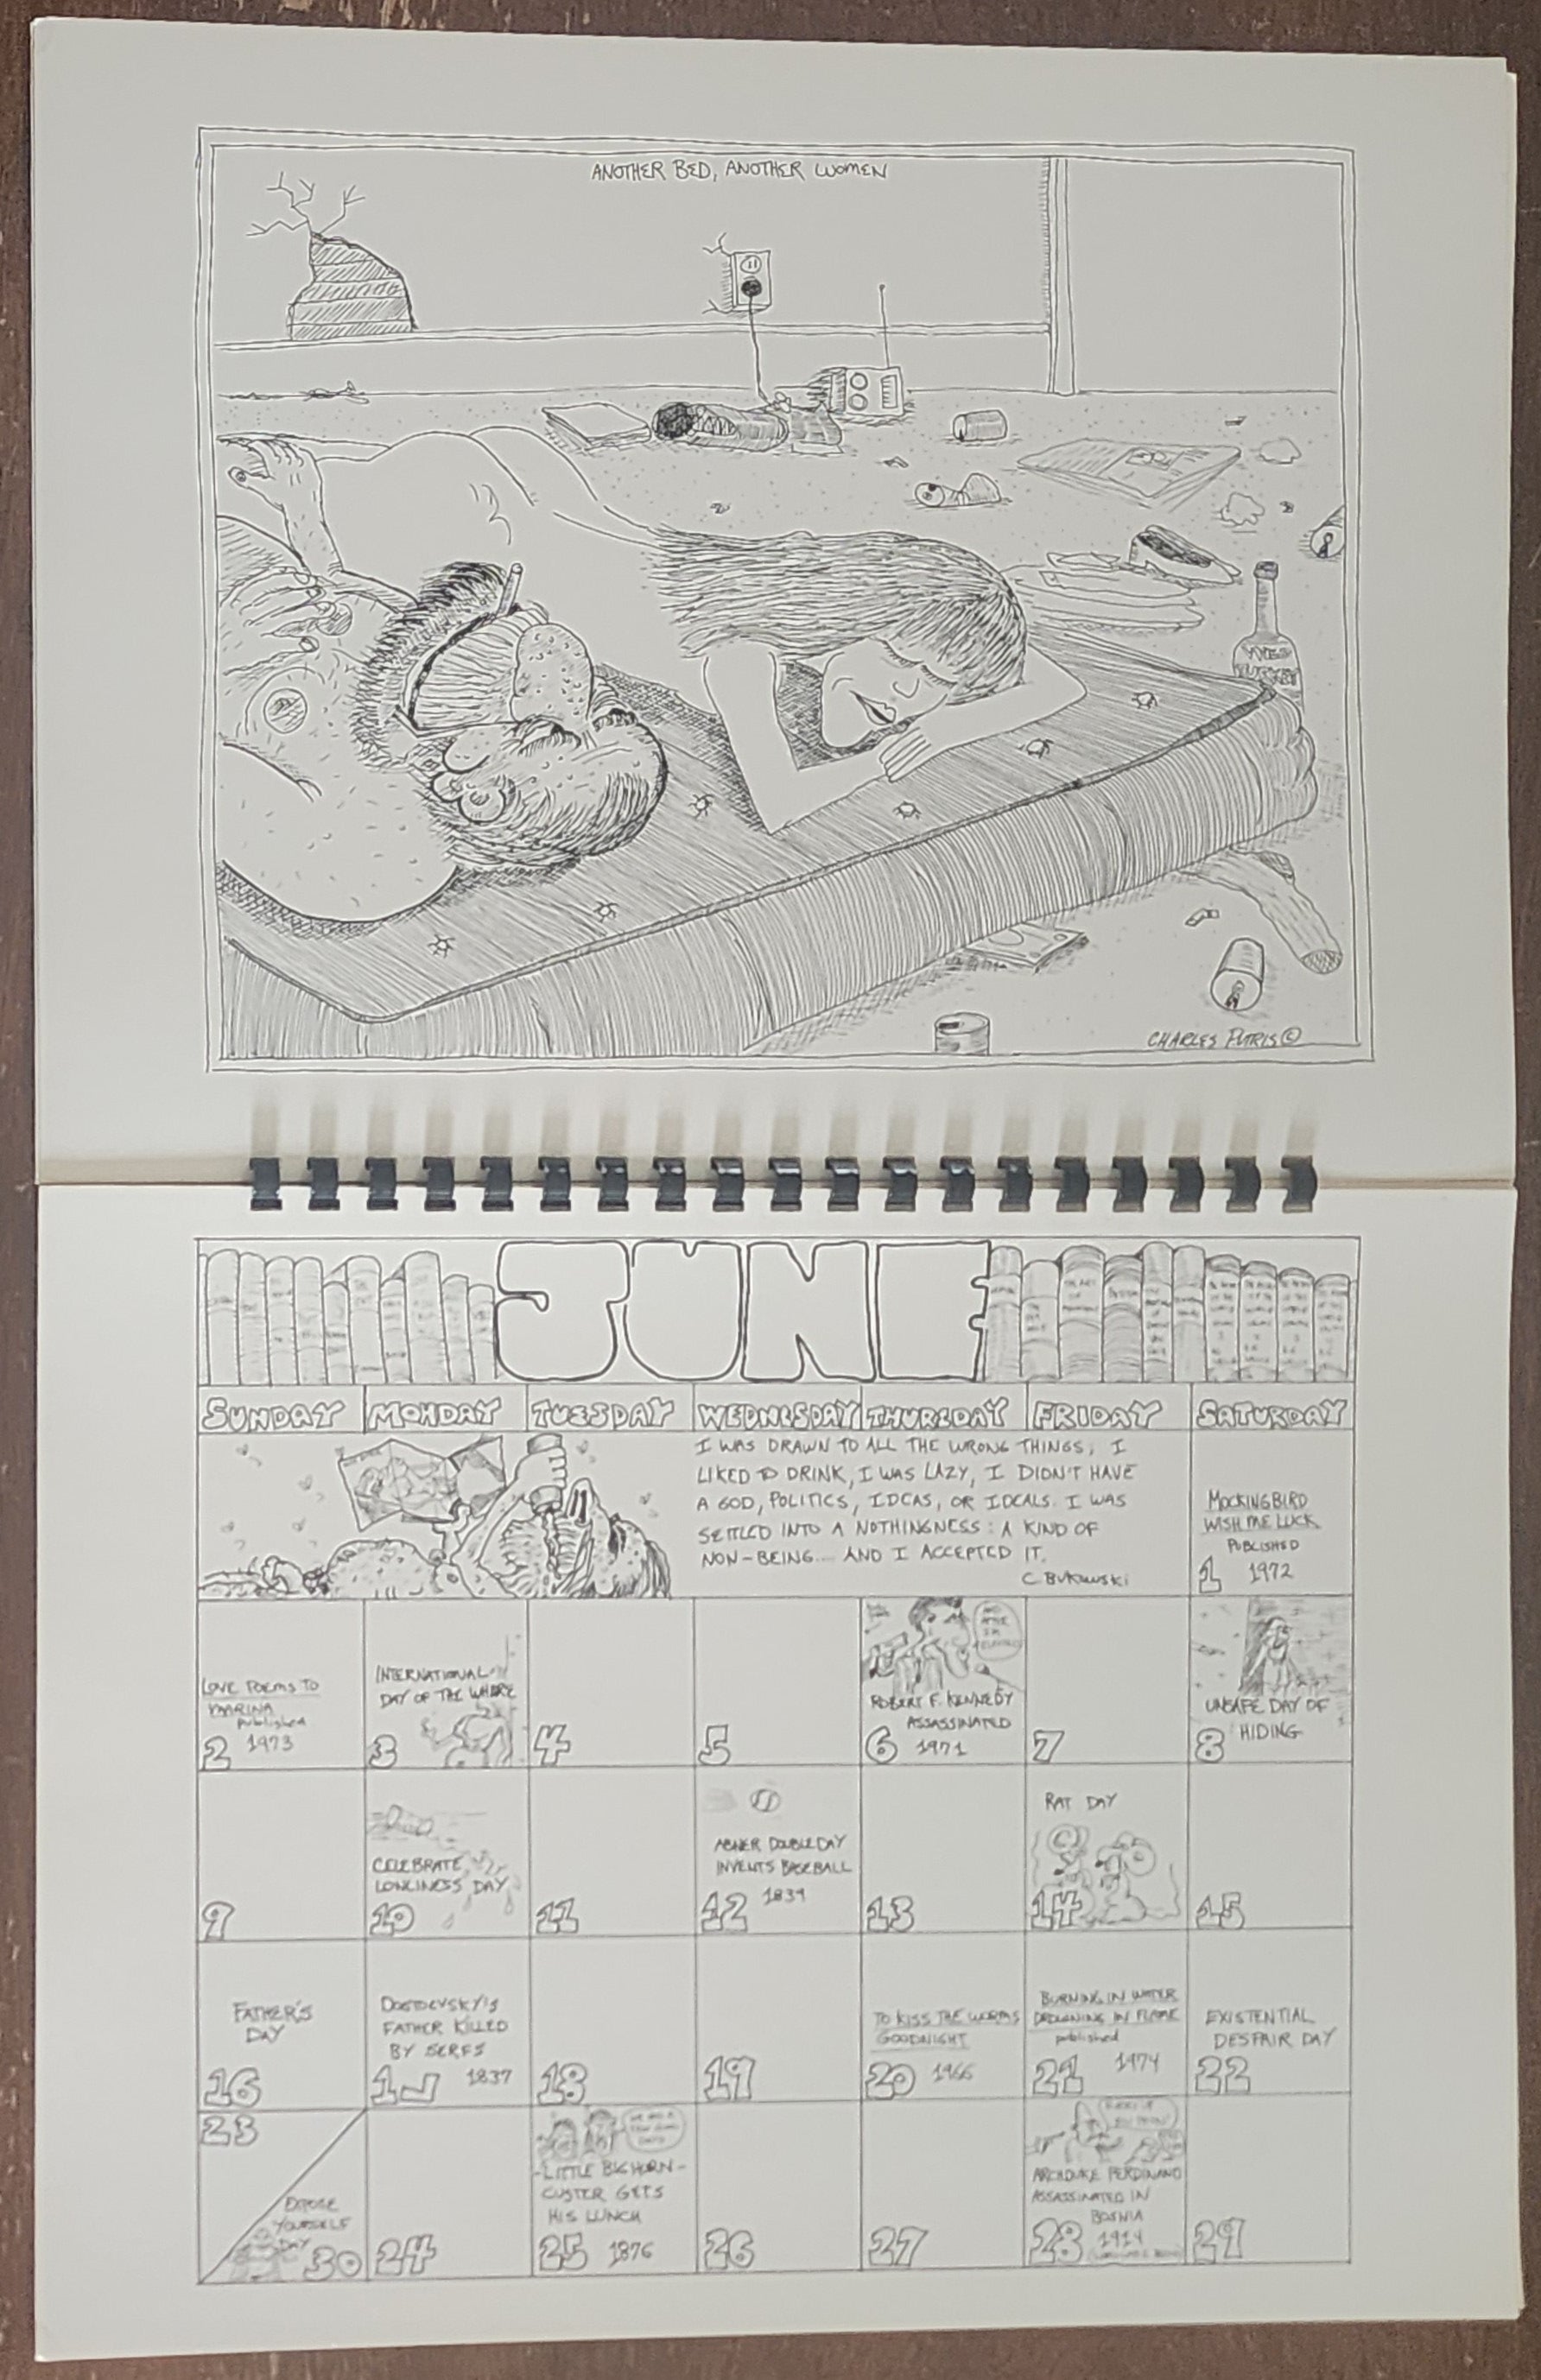 ANOTHER BED, ANOTHER WOMEN
WILD
TURKEY
CHARLES PUTRIS ©
JUNE
SUNDAY MONDAY TUESDAY WEDNESDAY THURSDAY FRIDAY SATURDAY
I WAS DRAWN TO ALL THE WRONG THINGS, I
LIKED TO DRINK, I WAS LAZY, I DIDN'T HAVE
A GOD, POLITICS, IDEAS, OR IDEALS. I WAS
SETTLED INTO A NOTHINGNESS: A KIND OF
NON-BEING... AND I ACCEPTED IT.
C. BUKOWSKI
MOCKINGBIRD
WISH ME LUCK
PUBLISHED
1 1972
LOVE POEMS TO
MARINA
published
2 1973
INTERNATIONAL
DAY OF THE WHORE
3
4
5
ROBERT F. KENNEDY
ASSASSINATED
6 1971
7
UNSAFE DAY OF
HIDING
8
9
CELEBRATE
LONLINESS DAY
10
11
ABNER DOUBLEDAY
INVENTS BASEBALL
12 1839
13
RAT DAY
14
15
FATHER'S
DAY
16
DOSTOEVSKY'S
FATHER KILLED
BY SERFS
17 1837
18
19
TO KISS THE WORMS
GOODNIGHT
20 1966
BURNING IN WATER
DROWNING IN FLAME
published
21 1974
EXISTENTIAL
DESPAIR DAY
22
23
EXPOSE
YOURSELF
DAY
30
24
-LITTLE BIGHORN-
CUSTER GETS
HIS LUNCH
25 1876
26
27
ARCHDUKE FERDINAND
ASSASSINATED IN
BOSNIA
28 1914
29